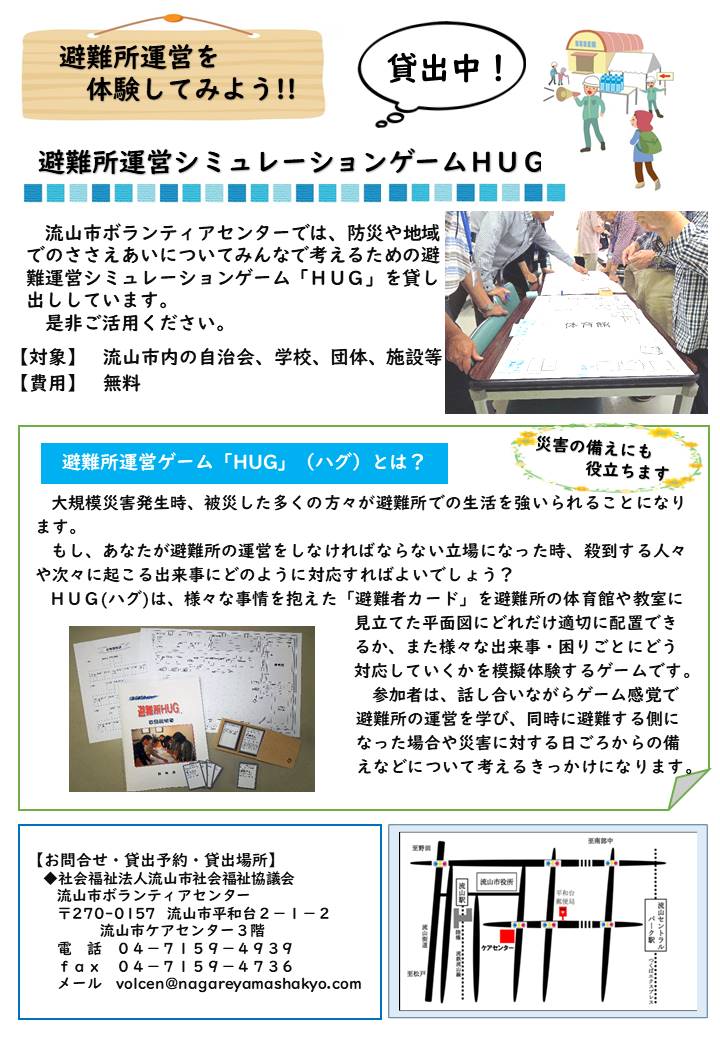 避難所運営を
体験してみよう!!
貸出中！
避難所運営シミュレーションゲームＨＵＧ
流山市ボランティアセンターでは、防災や地域
でのささえあいについてみんなで考えるための避
難運営シミュレーションゲーム「ＨＵＧ」を貸し
出ししています。
是非ご活用ください。
【対象】　流山市内の自治会、学校、団体、施設等
【費用】　無料
体育館
避難所運営ゲーム「HUG」（ハグ）とは？
災害の備えにも
役立ちます
大規模災害発生時、被災した多くの方々が避難所での生活を強いられることになり
ます。
もし、あなたが避難所の運営をしなければならない立場になった時、殺到する人々
や次々に起こる出来事にどのように対応すればよいでしょう？
ＨＵＧ(ハグ)は、様々な事情を抱えた「避難者カード」を避難所の体育館や教室に
見立てた平面図にどれだけ適切に配置でき
るか、また様々な出来事・困りごとにどう
対応していくかを模擬体験するゲームです。
参加者は、話し合いながらゲーム感覚で
避難所の運営を学び、同時に避難する側に
なった場合や災害に対する日ごろからの備
えなどについて考えるきっかけになります。
避難所HUG
【お問合せ・貸出予約・貸出場所】
◆社会福祉法人流山市社会福祉協議会
流山市ボランティアセンター
〒270-0157 流山市平和台２－１－２
流山市ケアセンター３階
電　話　０４－７１５９－４９３９
ｆａｘ　０４－７１５９－４７３６
メール　volcen@nagareyamashakyo.com
至野田
至南部中
流山市役所
流山駅
平和台
郵便局
流山セントラル
パーク駅
ケアセンター
流山街道
流鉄流山線
至松戸
つくばエクスプレス